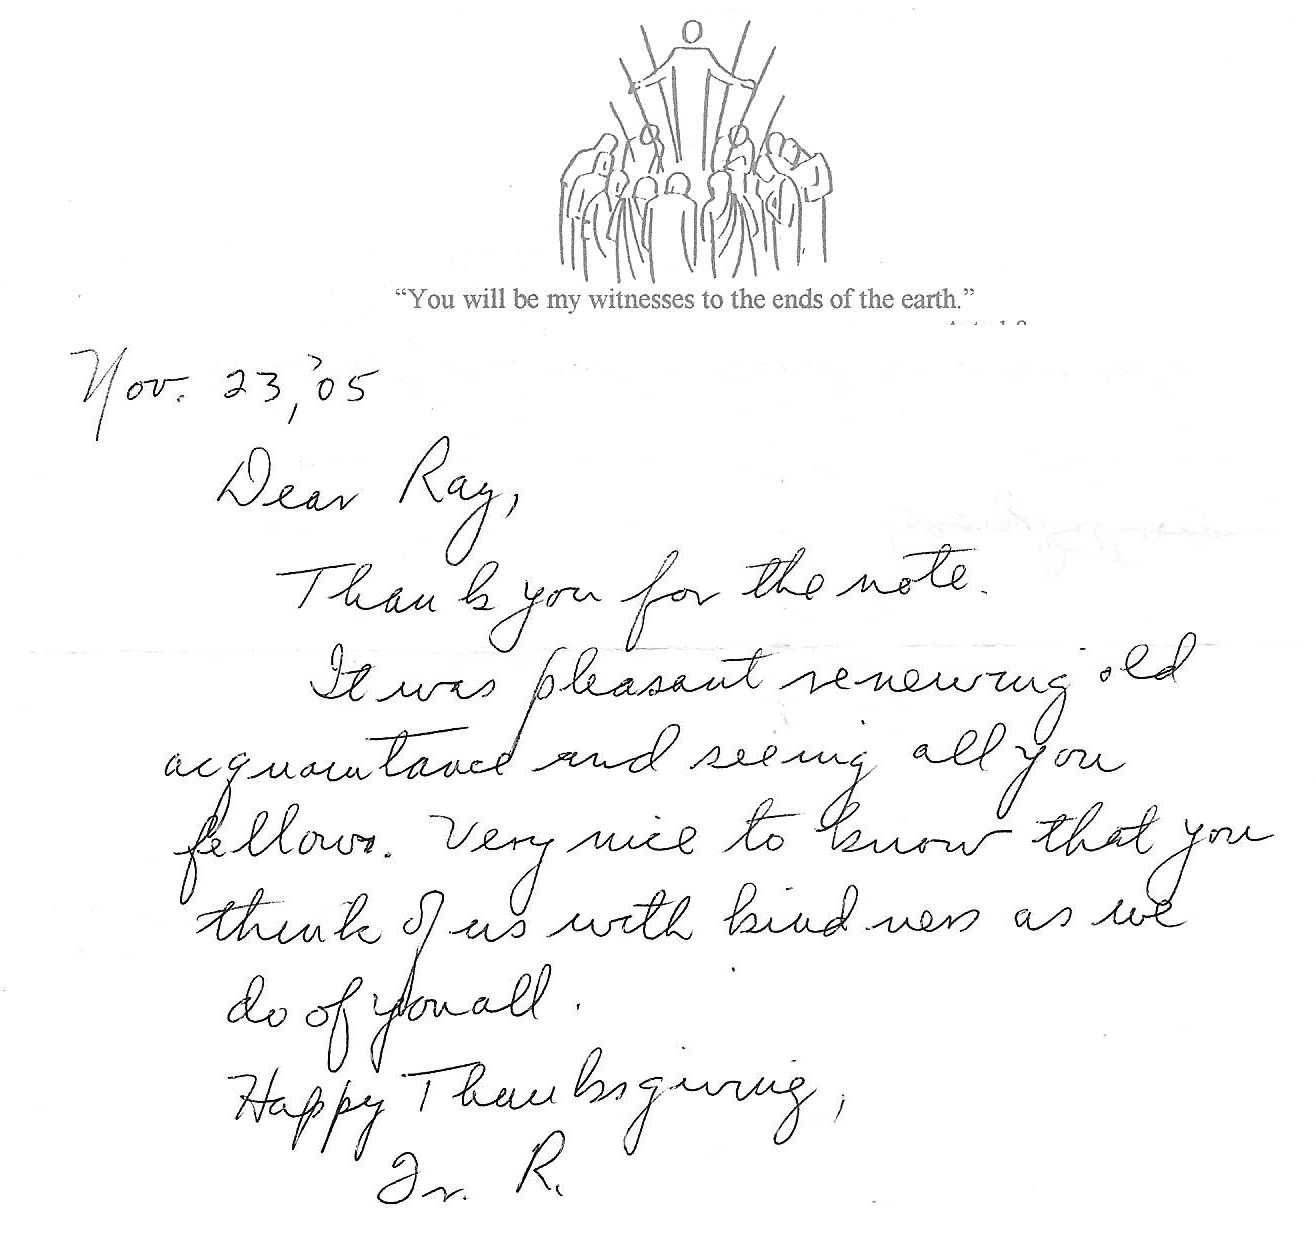 “You will be my witnesses to the ends of the earth.”
Nov. 23, '05
Dear Ray,
Thank you for the note.
It was pleasant renewing old
acquaintance and seeing all you
fellows. Very nice to know that you
think of us with kindness as we
do of you all.
Happy Thanksgiving,
Fr. R.